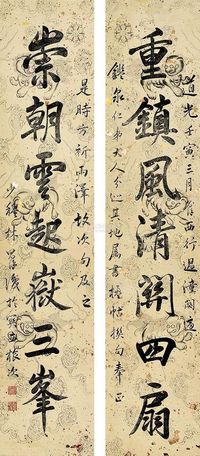 道光壬寅三月管西行過潼關適
鑑泉仁弟大人分巡其地屬書楹帖撰句奉正
重鎮風清關四扇
崇朝雲起嶽三峯
是時方祈雨澤故次句及之
少穆林則徐